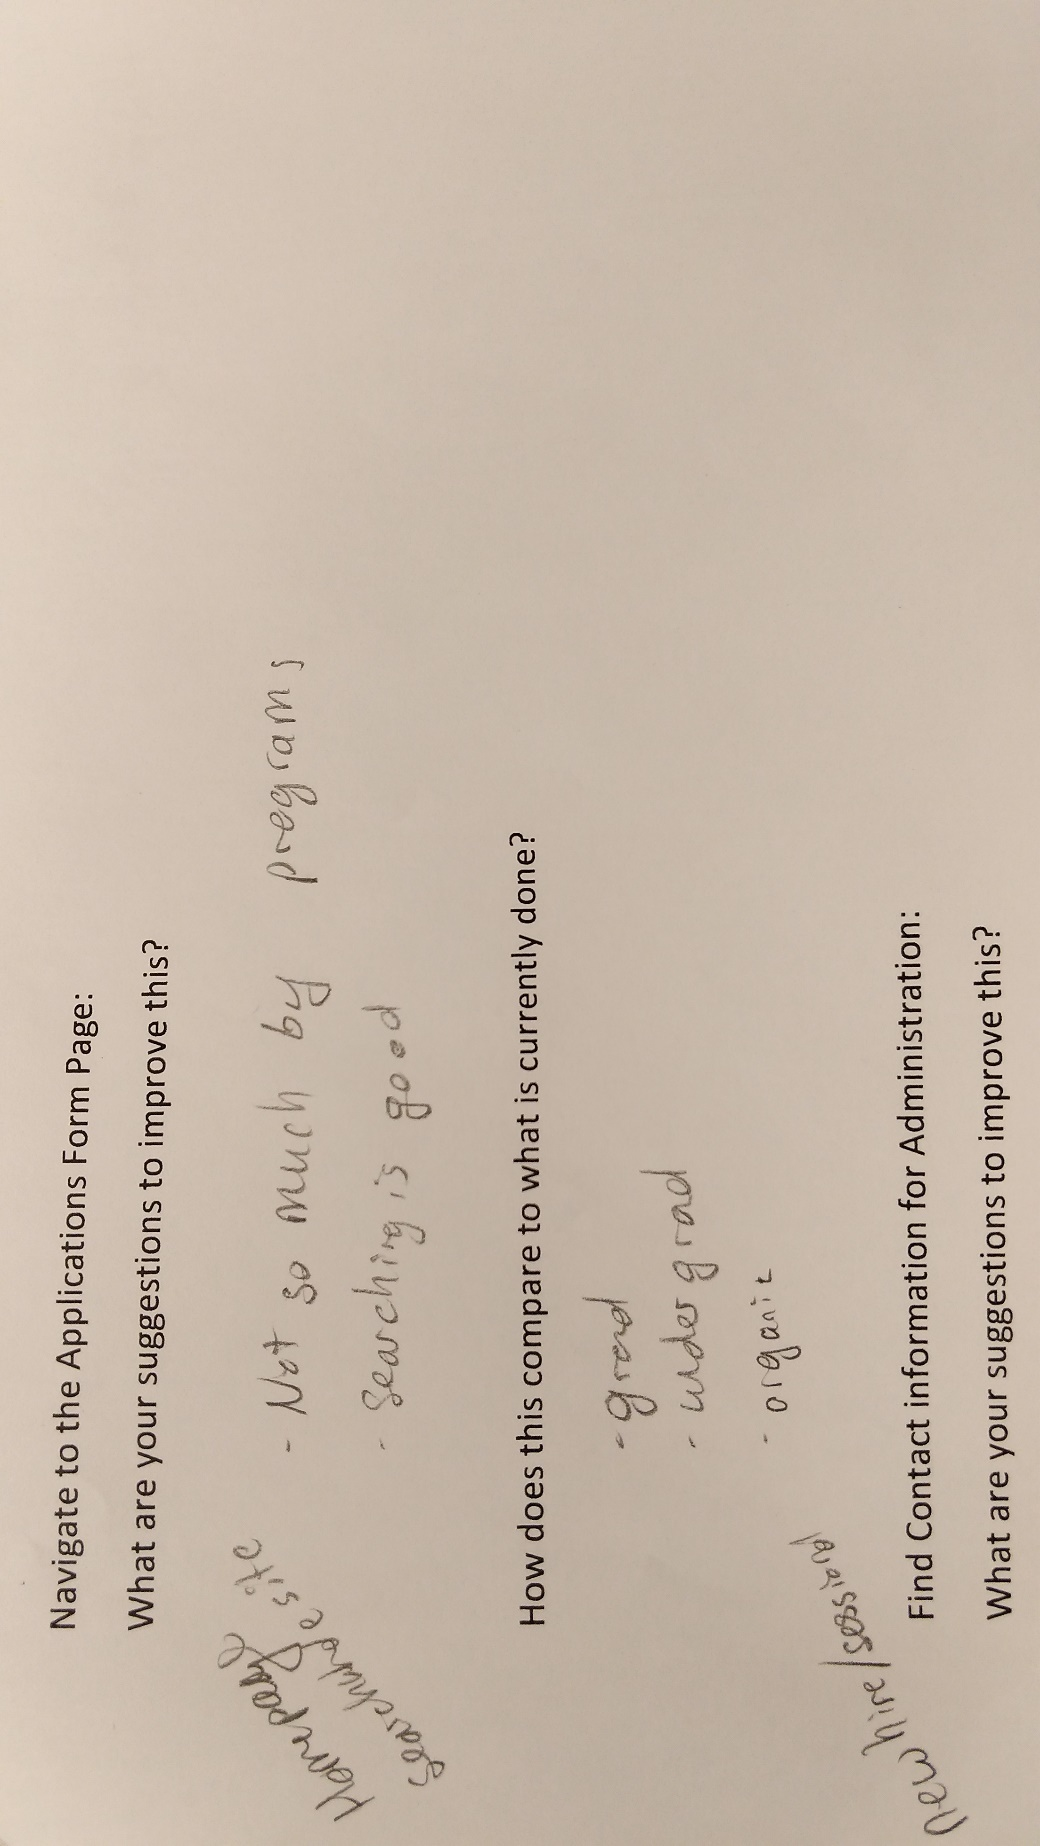 Navigate to the Applications Form Page:
What are your suggestions to improve this?
Homepage
site
- Not so much by programs
- Searching is good
How does this compare to what is currently done?
- grad
- undergrad
- organic
new hire/sessional
Find Contact information for Administration:
What are your suggestions to improve this?